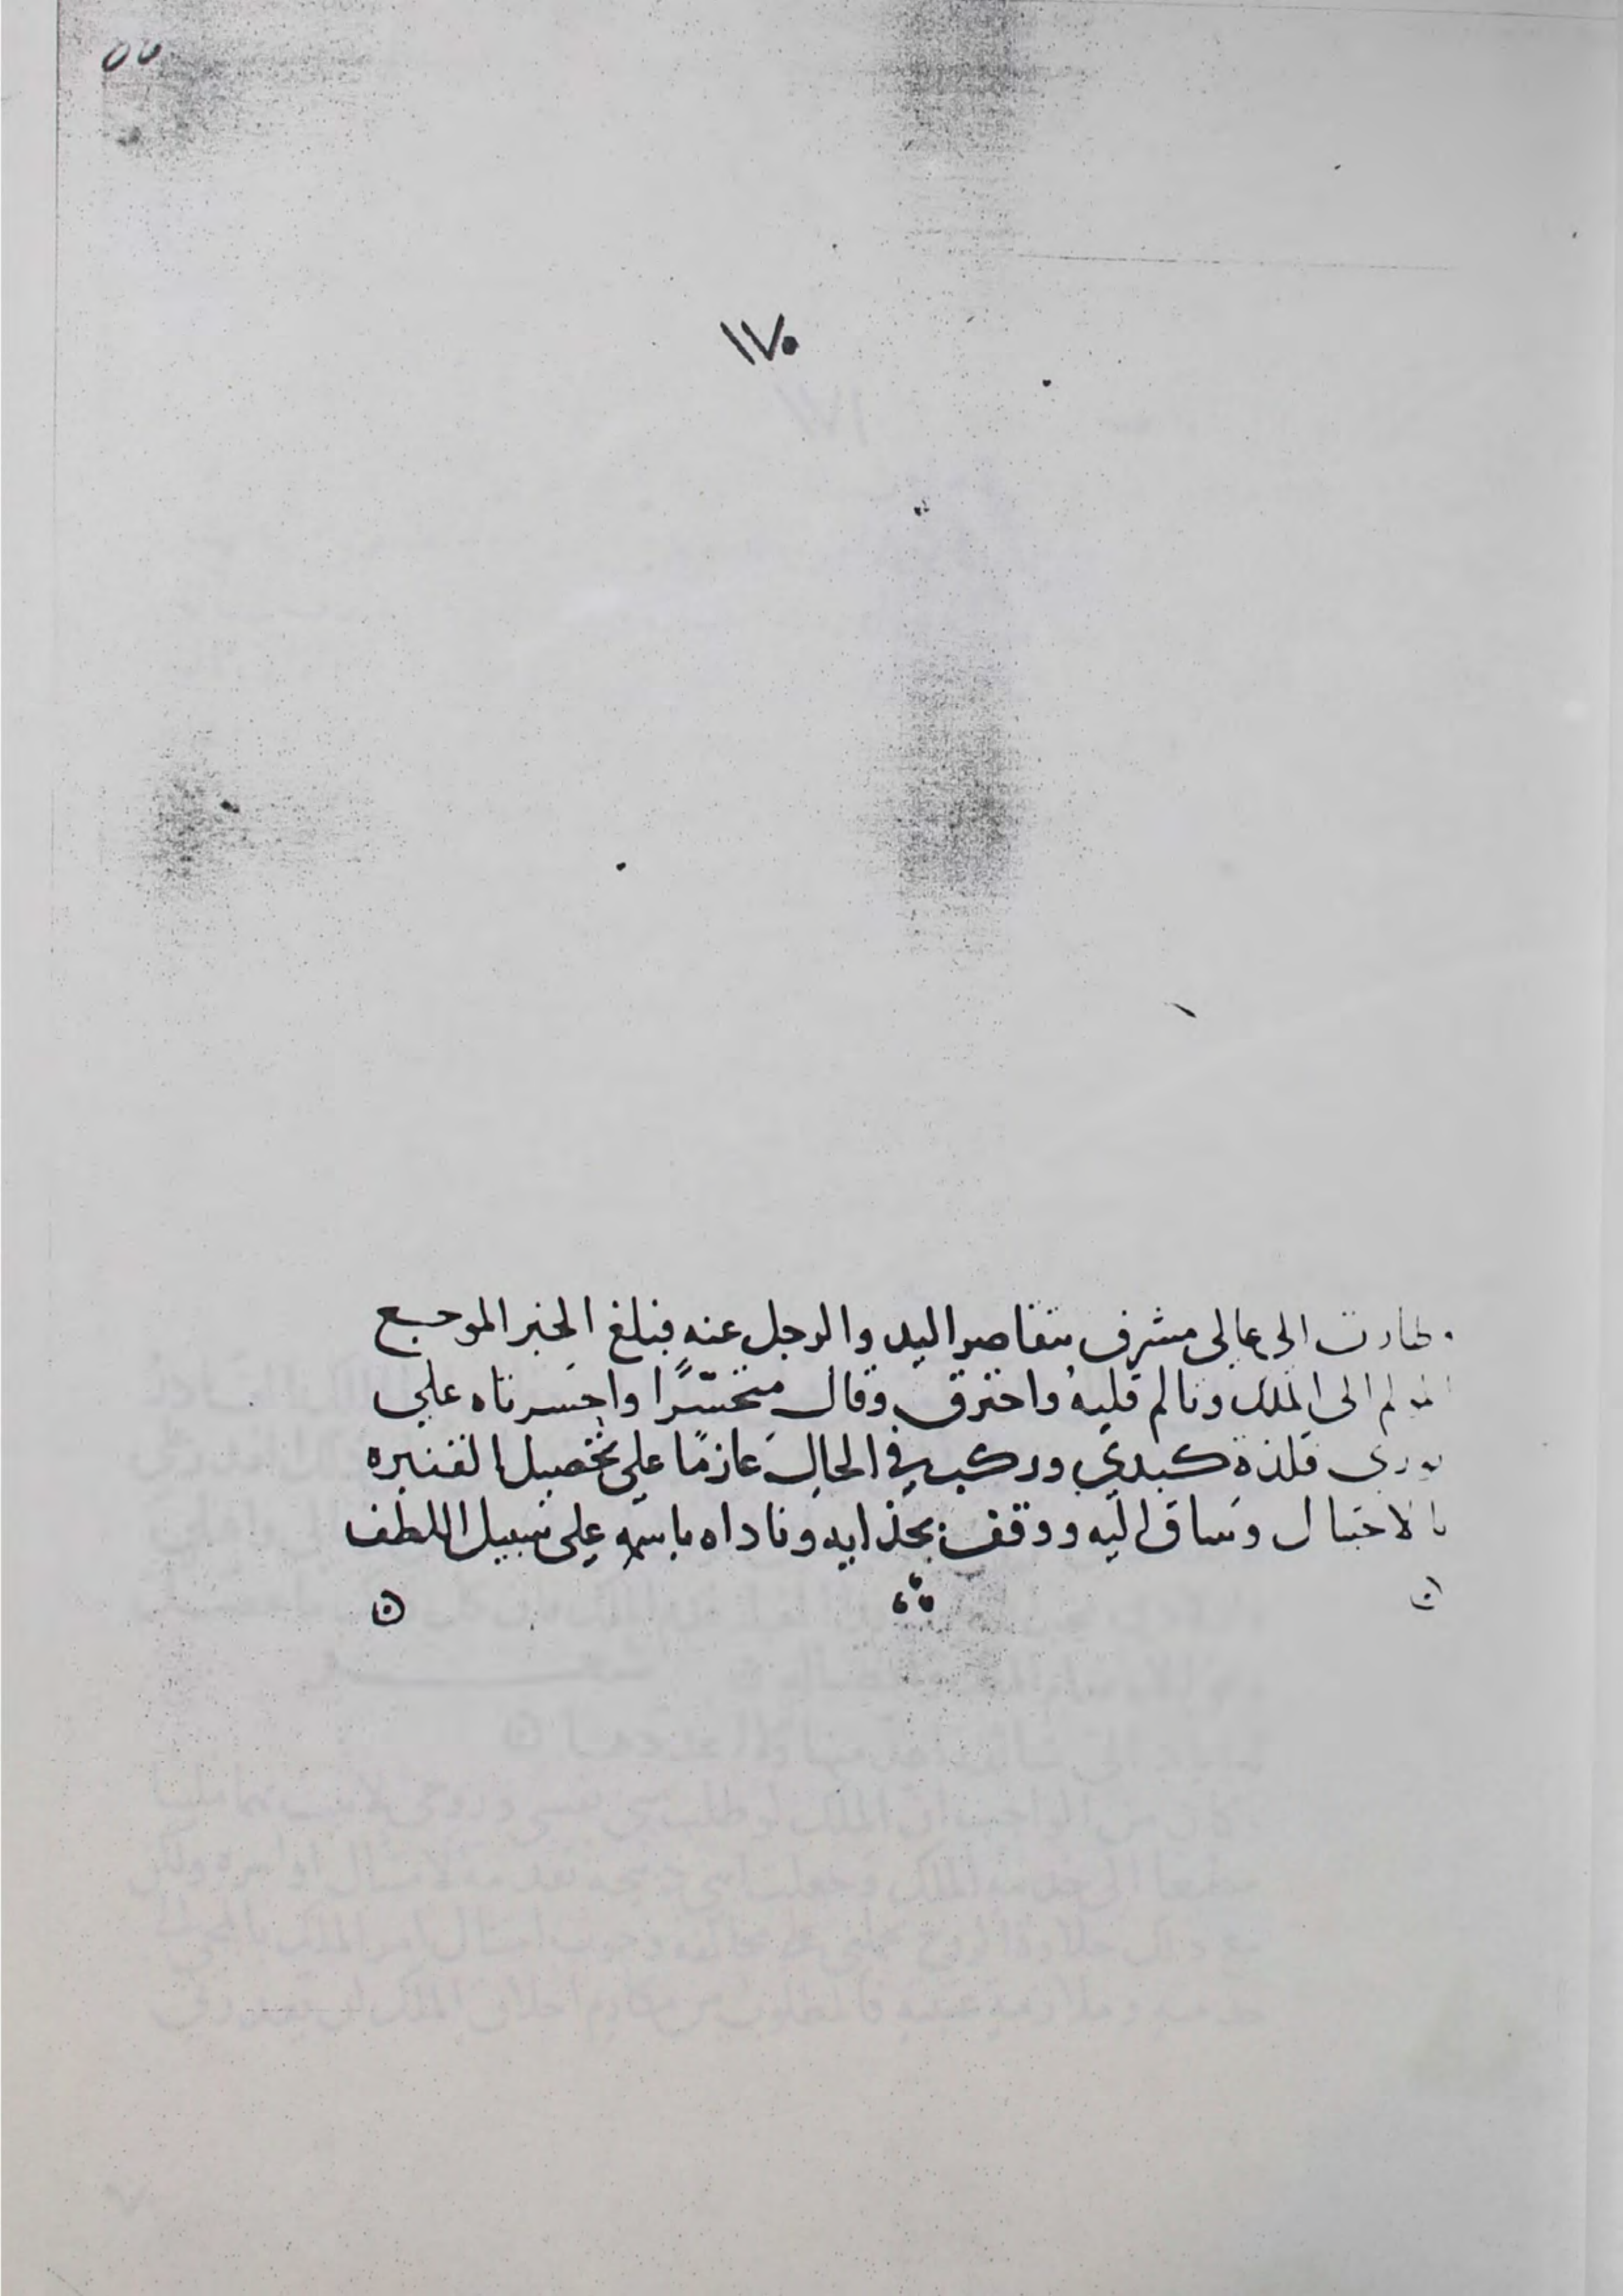 ١٧٠
وطارت الى عالى مشرف يتقاصر اليد والرجل عنه فبلغ الخبر الموجع
المولم الى الملك وتالم قلبه واحترق وقال متحسّرًا واحسرتاه على
نورى فلذة كبدي وركب في الحال عازمًا على تحصيل القنبره
بالاحتيال وساق اليه ووقف بحذايه وناداه باسمه على سبيل اللطف